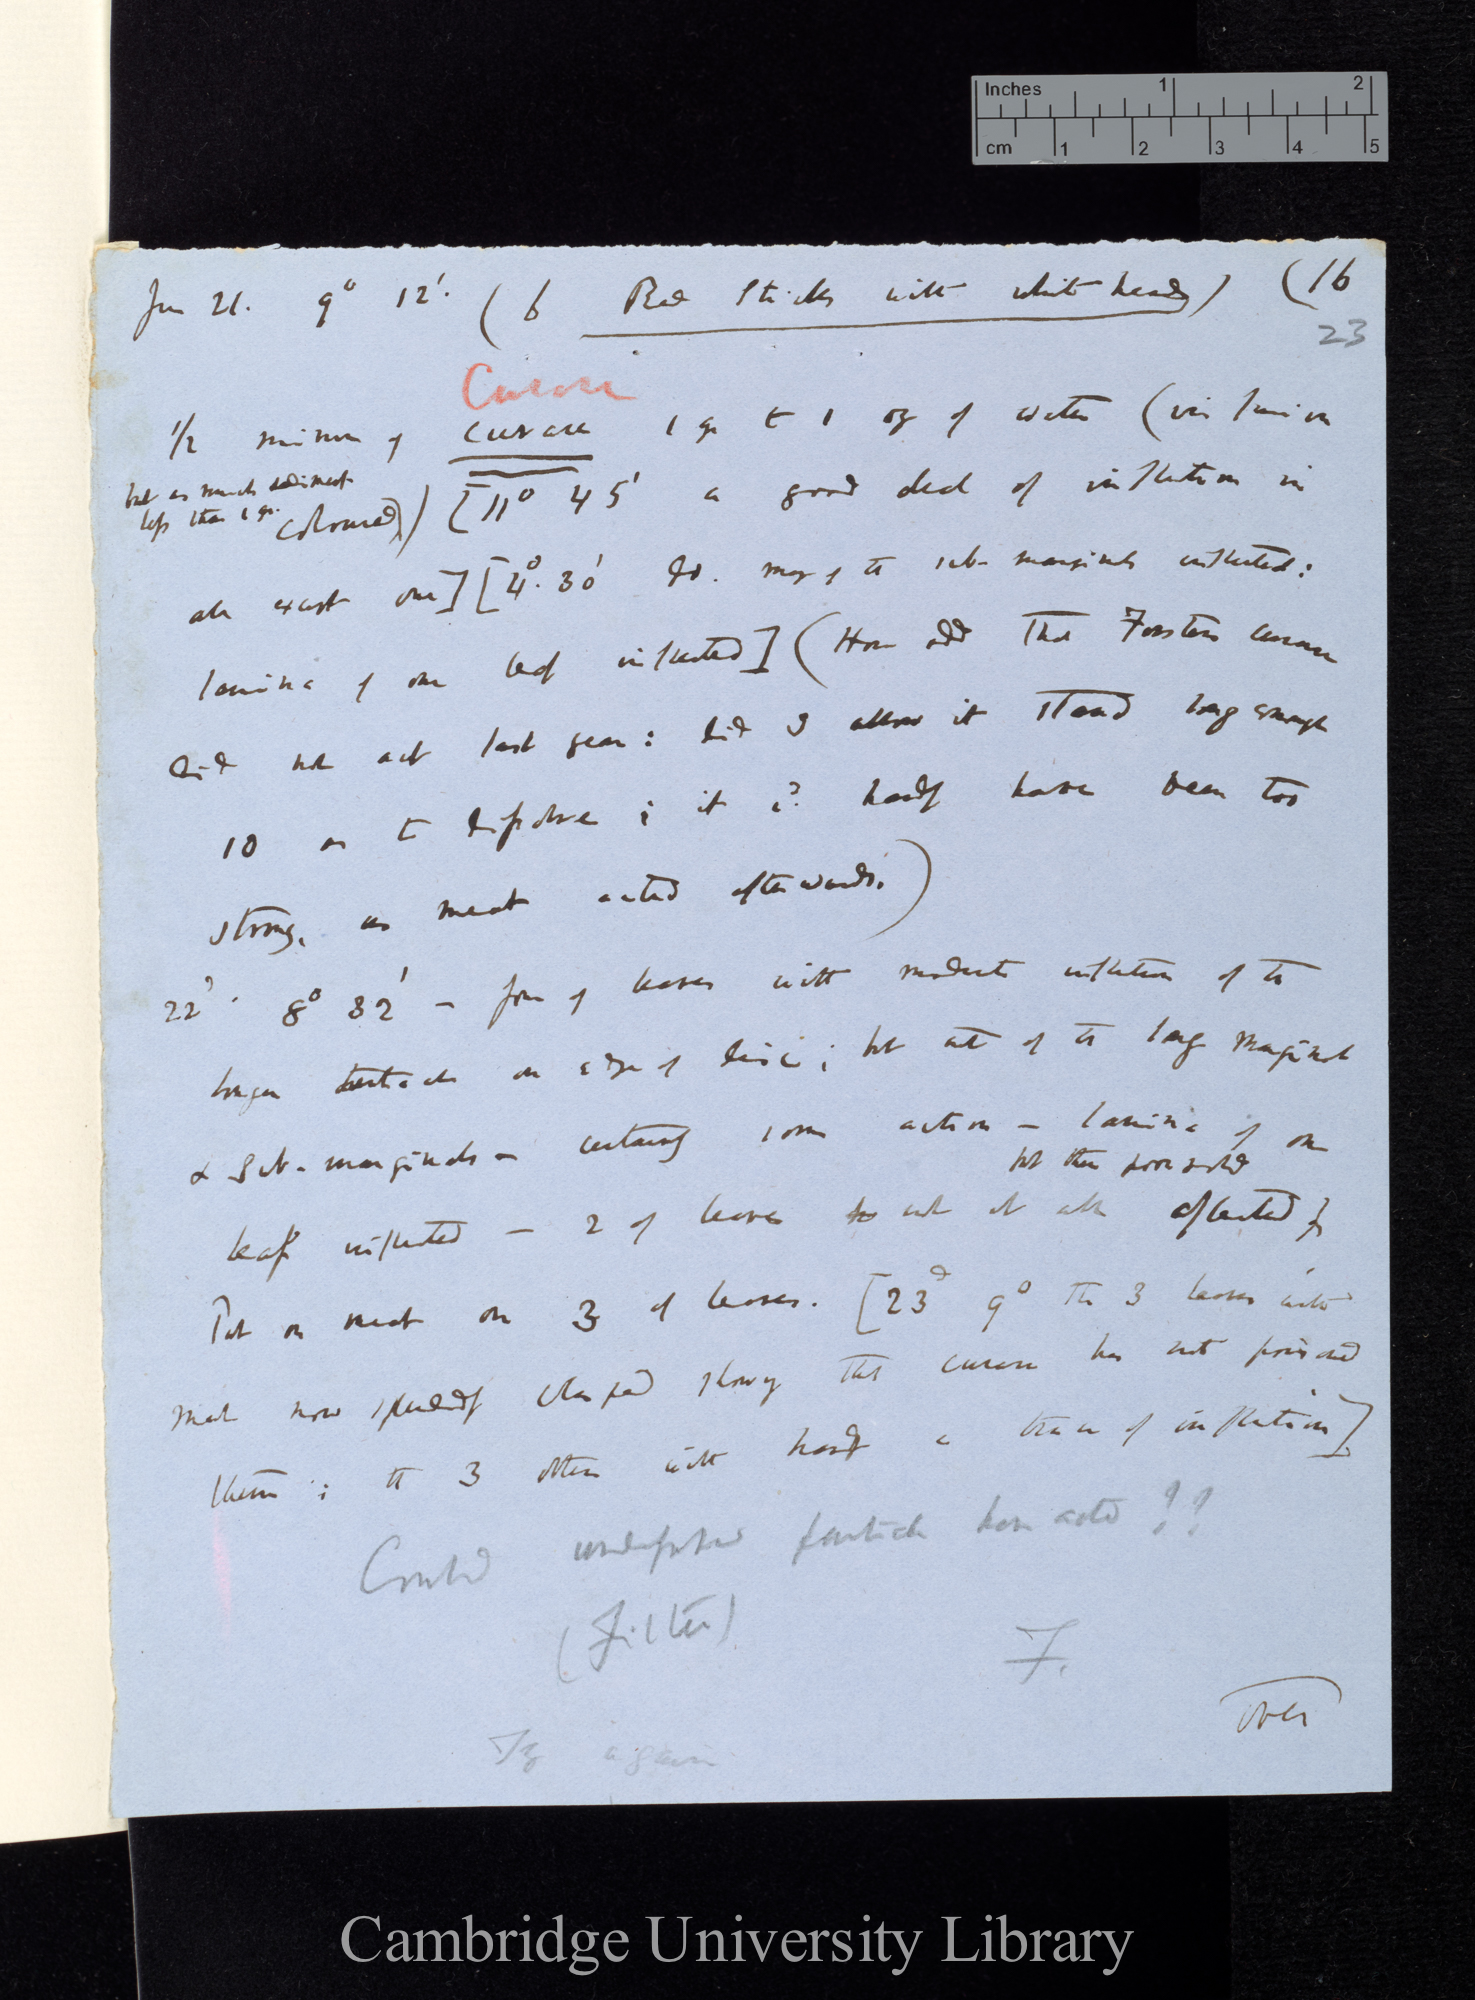 Inches 1 2
cm 1 2 3 4 5
Jun 21. 9° 12'. (6 Red Sticks with white heads) (16
23
Curare
1/2 minim of curare 1 gr to 1 oz of water (
but as much sediment
less than 1 gr.
coloured)) [11° 45' a good deal of inflection in
all except one] [4°. 30' do. many of the sub-marginals inflected:
lamina of one leaf inflected] (How odd that Forsters curare
did not act last year: did I allow it stand long enough
so as to dissolve; it hardly have been too
strong, as meat acted afterwards.)
22 8° 32' — four of leaves with moderate inflection of the
longer tentacles on edge of disc; but not of the long marginals
& sub-marginals — certainly some action — lamina of one
but then poor
leaf inflected — 2 of leaves not at all affected;
Put on meat on 3 of leaves. [23d 9° The 3 leaves with
meat now splendidly clasped showing that curare has not poisoned
them; the 3 others with hardly a trace of inflection]
Could undissolved particle have acted!!
(Filter)
F.
Over
Try again
Cambridge University Library